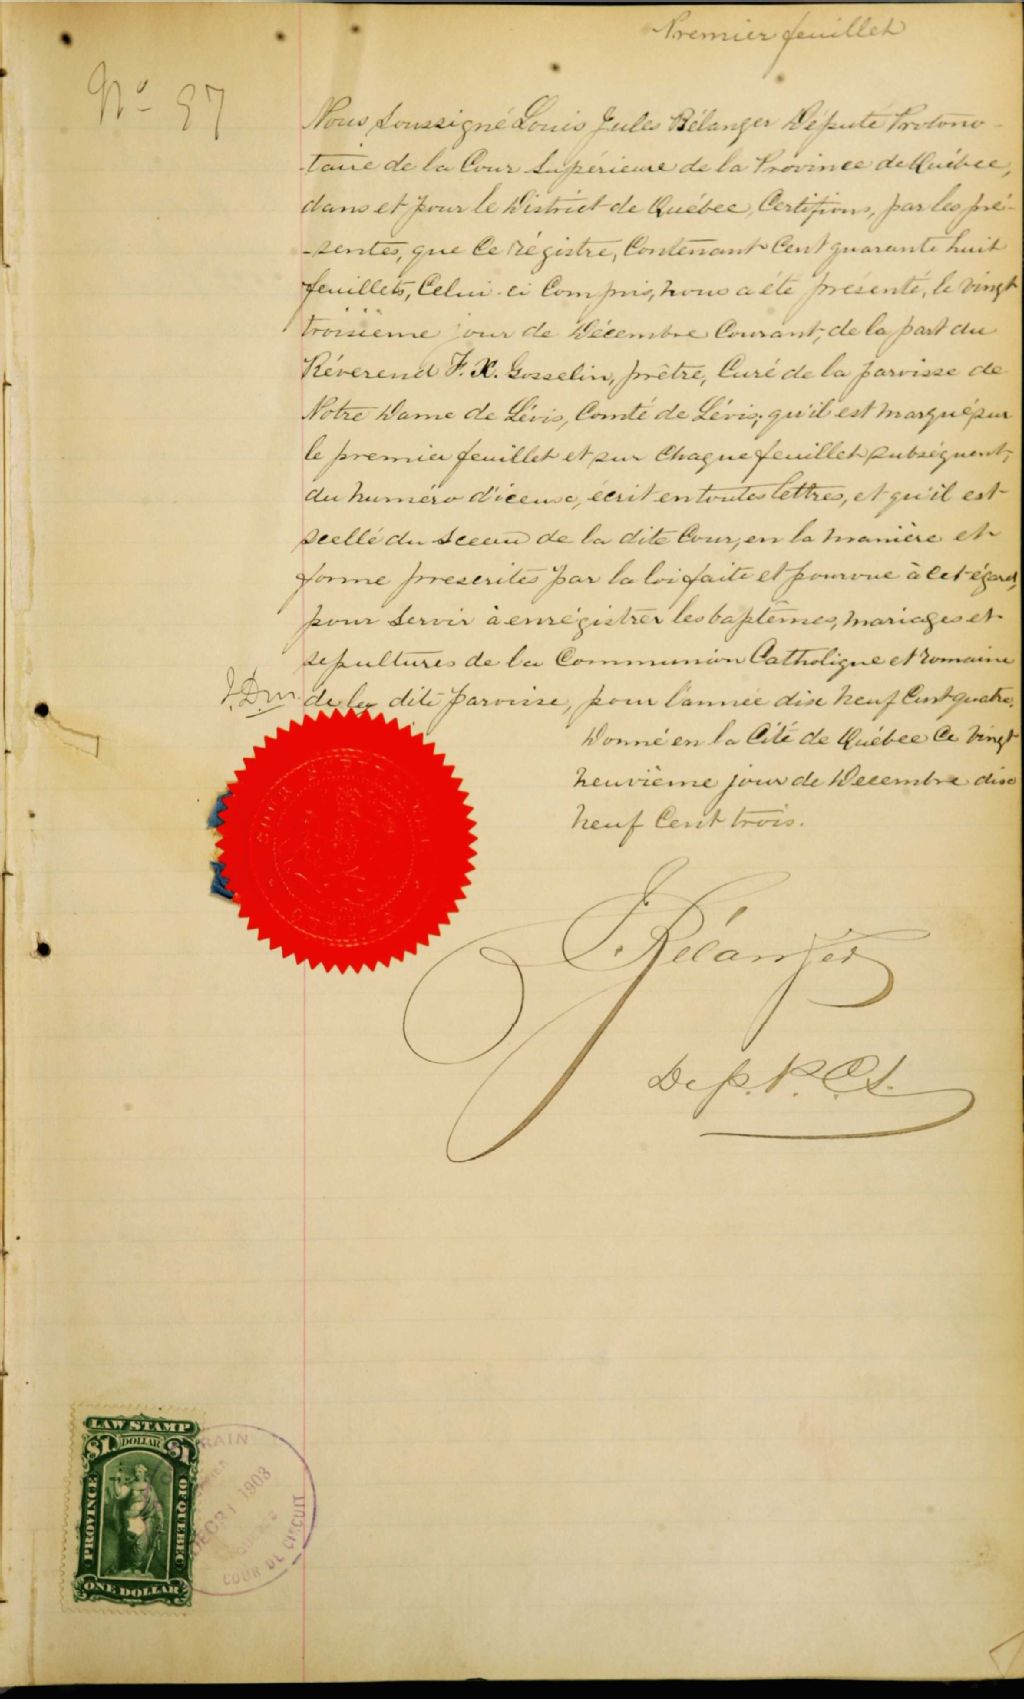 Premier feuillet
No 97
Nous Soussigné Louis Jules Bélanger Député Protono-
-taire de la Cour Supérieure de la Province de Québec,
dans et pour le District de Québec, Certifions, par les pré-
-sentes, que Ce régistre, Contenant Cent quarante huit
feuillets, Celui-ci Compris, nous a été présenté, le vingt
troisième jour de Décembre Courant, de la part du
Révérend F. X. Gosselin, prêtre, Curé de la paroisse de
Notre Dame de Lévis, Comté de Lévis; qu'il est marqué sur
le premier feuillet et sur Chaque feuillet subséquent,
du numéro d'iceux, écrit en toutes lettres, et qu'il est
scellé du sceau de la dite Cour, en la manière et
forme prescrites par la loi faite et pourvue à cet égard,
pour servir à enrégistrer les baptêmes, mariages et
sepultures de la Communion Catholique et romaine
de la dite paroisse, pour l'année dix neuf Cent quatre.
Donné en la Cité de Québec Ce vingt
neuvième jour de Decembre dix
neuf Cent trois.
J. Bélanger
Dep. P. C. S.
LAW STAMP
$1 DOLLAR $1
PROVINCE OF QUEBEC
ONE DOLLAR
1903
COUR DE CIRCUIT